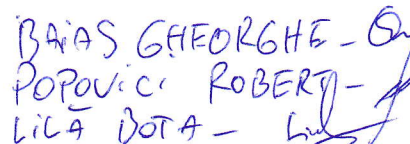 BAIAS GHEORGHE -
POPOVICI ROBERT -
LILĂ BOTA -